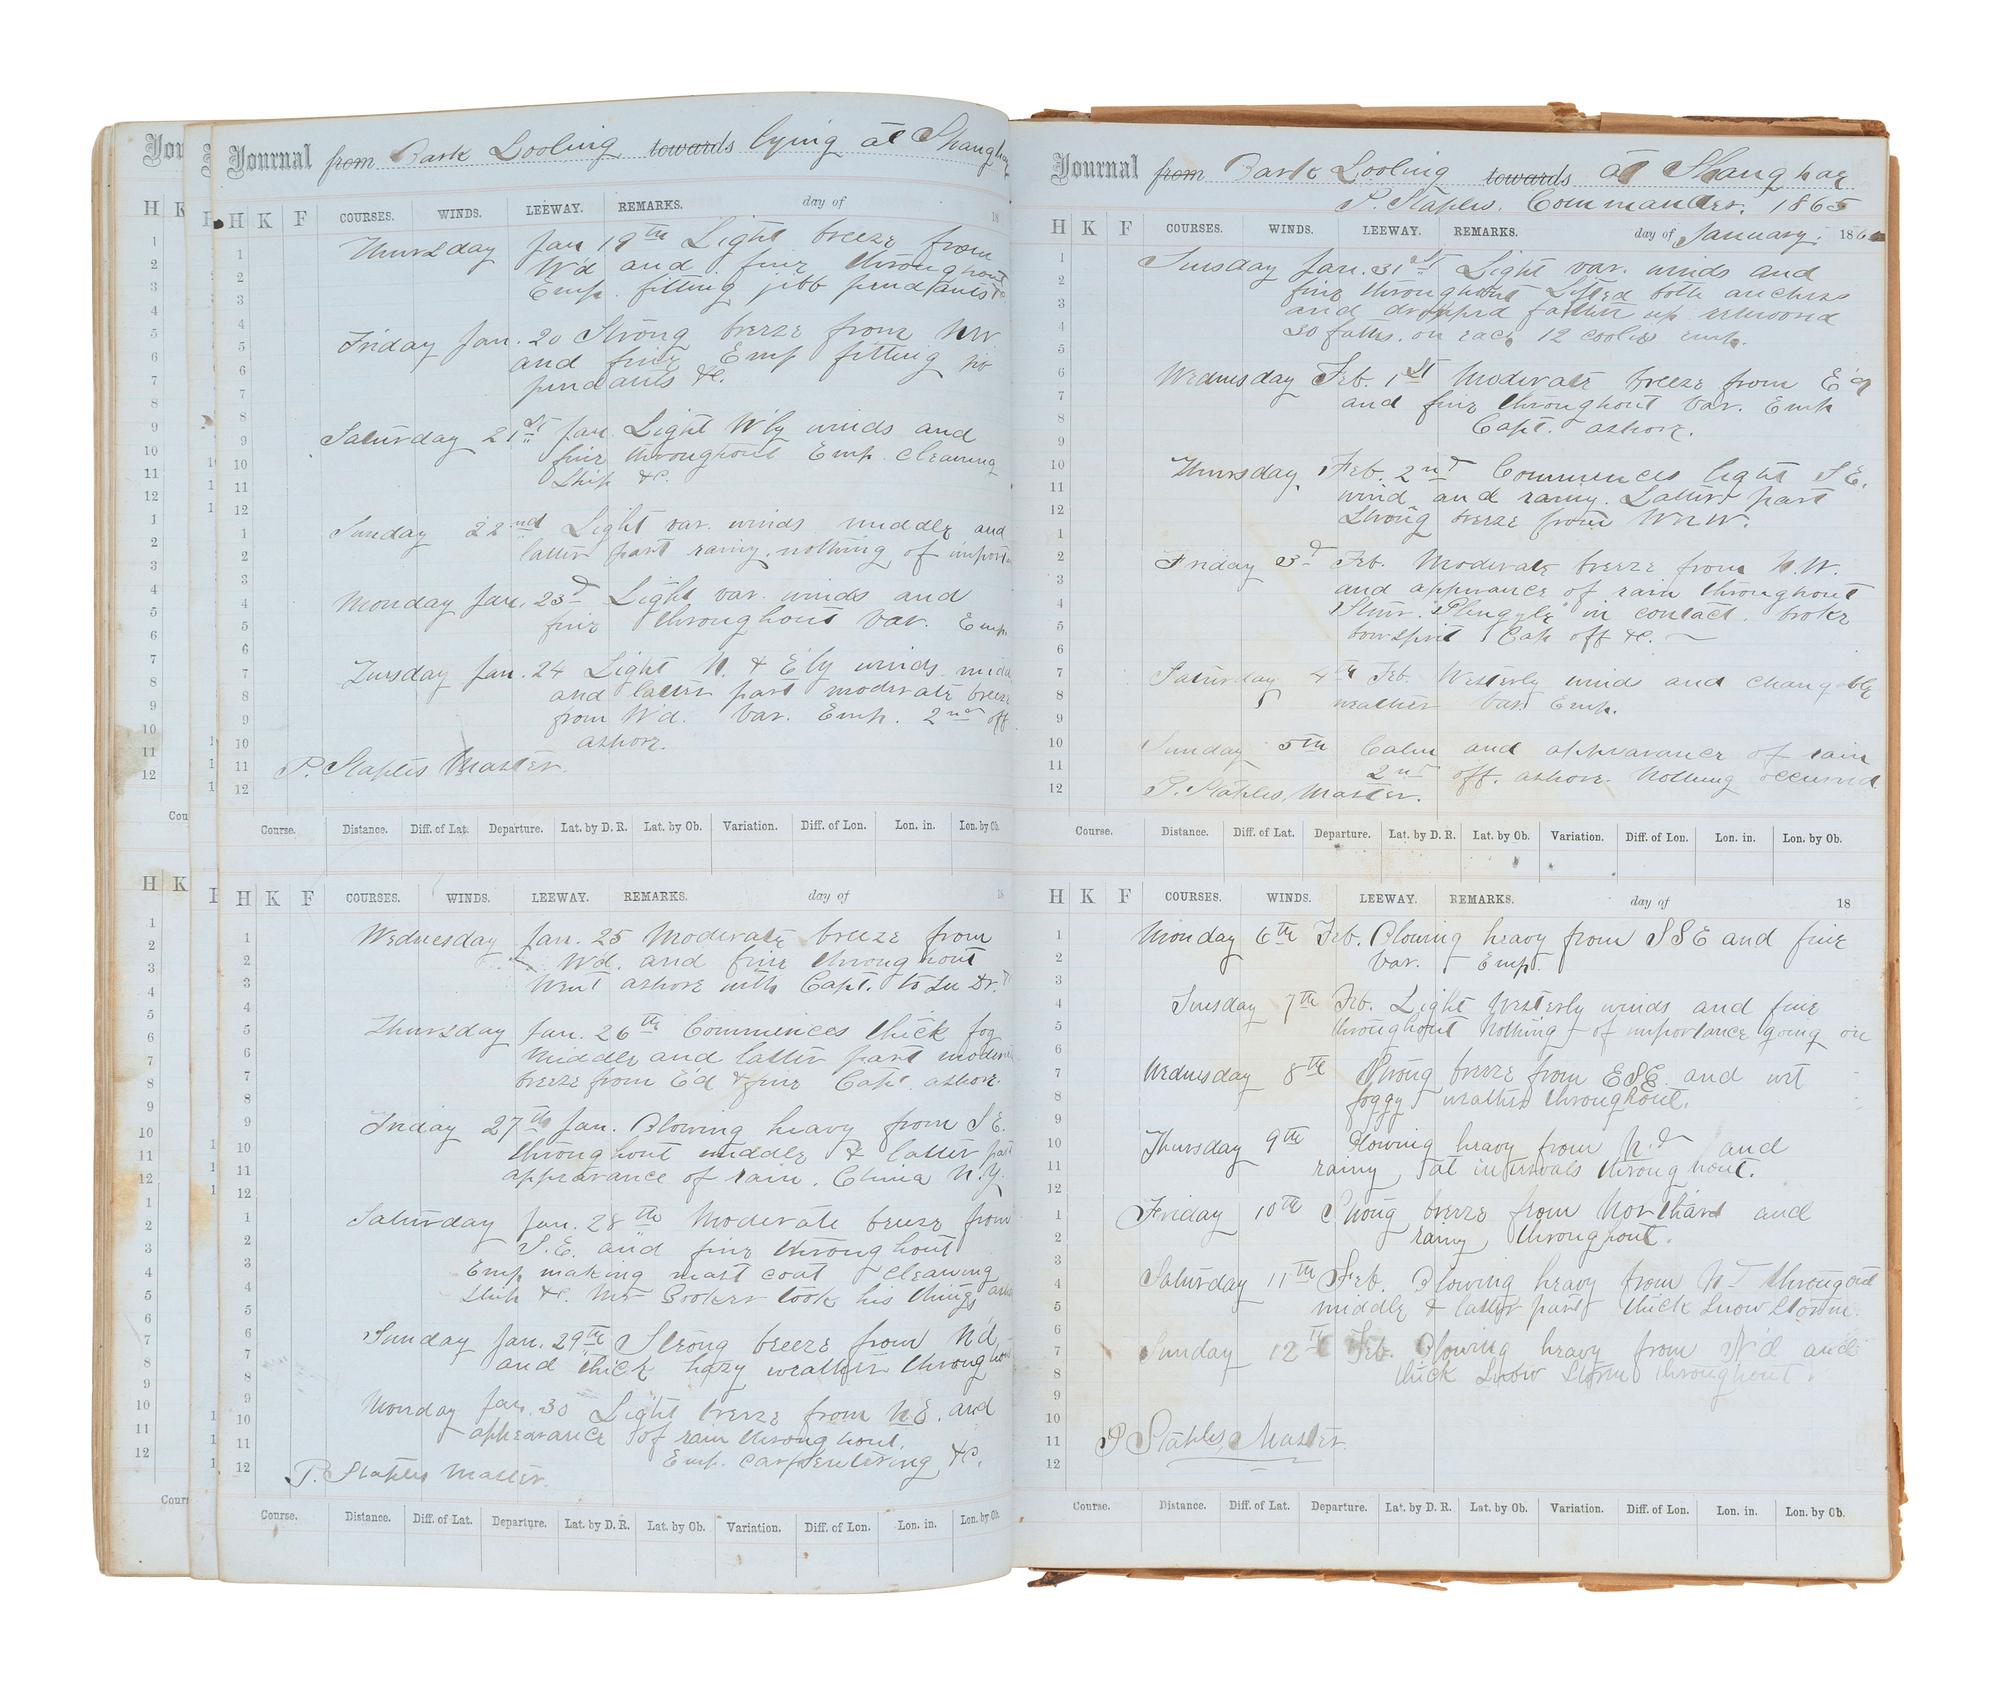 Jour
H K
1
2
3
4
5
6
7
8
9
10
11
12
1
2
3
4
5
6
7
8
9
10
11
12
Cou
H K
1
2
3
4
5
6
7
8
9
10
11
12
1
2
3
4
5
6
7
8
9
10
11
12
Cour
Journal from Bark Looling towards lying at Shanghae
H K F COURSES. WINDS. LEEWAY. REMARKS. day of 18
Thursday Jan 19th Light breeze from
W'd and fine throughout
Emp. fitting jibb pendants
Friday Jan. 20 Strong breeze from NW
and fine Emp fitting
pendants &c.
Saturday 21st Jan. Light W'ly winds and
fine throughout Emp. Cleaning
Ship &c.
Sunday 22nd Light var. winds middle and
latter part rainy. nothing of import
Monday Jan. 23d Light var. winds and
fine throughout Var. Emp.
Tuesday Jan. 24 Light N. & E'ly winds midd
and latter part moderate breeze
from W'd. Var. Emp. 2nd off
ashore.
P. Staples Master.
Course. Distance. Diff. of Lat. Departure. Lat. by D. R. Lat. by Ob. Variation. Diff. of Lon. Lon. in. Lon. by Ob.
H K F COURSES. WINDS. LEEWAY. REMARKS. day of 18
Wednesday Jan. 25 Moderate breeze from
W'd. and fine throughout
Went ashore with Capt. to See Dr.
Thursday Jan. 26th Commences thick fog
Middle and latter part moder
breeze from E'd & fine Capt. ashore.
Friday 27th Jan. Blowing heavy from S.E.
throughout middle & latter part
appearance of rain. China N.Y.
Saturday Jan. 28th Moderate breeze from
S.E. and fine throughout
Emp making mast coat cleaning
Ship &c. Mr Booker took his things
Sunday Jan. 29th Strong breeze from N'd
and thick hazy weather throughou
Monday Jan. 30 Light breeze from N.E. and
appearance of rain throughout.
Emp. carpentering &c.
P. Staples Master.
Course. Distance. Diff. of Lat. Departure. Lat. by D. R. Lat. by Ob. Variation. Diff. of Lon. Lon. in. Lon. by Ob.
Journal from Bark Looling towards at Shanghae
P. Staples. Commander. 1865
H K F COURSES. WINDS. LEEWAY. REMARKS. day of January. 186
Tuesday Jan. 31st Light var. winds and
fine throughout Lifted both anchors
and dropped farther up remoored
30 faths. on each 12 coolies emp.
Wednesday Feb. 1st Moderate breeze from E'd
and fine throughout Var. Emp
Capt. ashore.
Thursday Feb. 2nd Commences light S.E.
wind and rainy. Latter part
Strong breeze from WNW.
Friday 3d Feb. Moderate breeze from N.W.
and appearance of rain throughout
Stmr. in contact. broke
bowsprit Cap off &c.
Saturday 4th Feb. Westerly wind and changable
weather Var. Emp.
Sunday 5th Calm and appearance of rain
2nd off. ashore. Nothing occurred
P. Staples, Master.
Course. Distance. Diff. of Lat. Departure. Lat. by D. R. Lat. by Ob. Variation. Diff. of Lon. Lon. in. Lon. by Ob.
H K F COURSES. WINDS. LEEWAY. REMARKS. day of 18
Monday 6th Feb. Blowing heavy from SSE and fine
Var. Emp.
Tuesday 7th Feb. Light Westerly winds and fine
throughout Nothing of importance going on
Wednesday 8th Strong breeze from ESE and wet
foggy weather throughout.
Thursday 9th Blowing heavy from N.d and
rainy at intervals throughout.
Friday 10th Strong breeze from Northard and
rainy throughout.
Saturday 11th Feb. Blowing heavy from Nd througout
middle & latter part thick Snow Storm.
Sunday 12th Feb. Blowing heavy from N'd and
thick Snow Storm throughout.
P Staples, Master.
Course. Distance. Diff. of Lat. Departure. Lat. by D. R. Lat. by Ob. Variation. Diff. of Lon. Lon. in. Lon. by Ob.